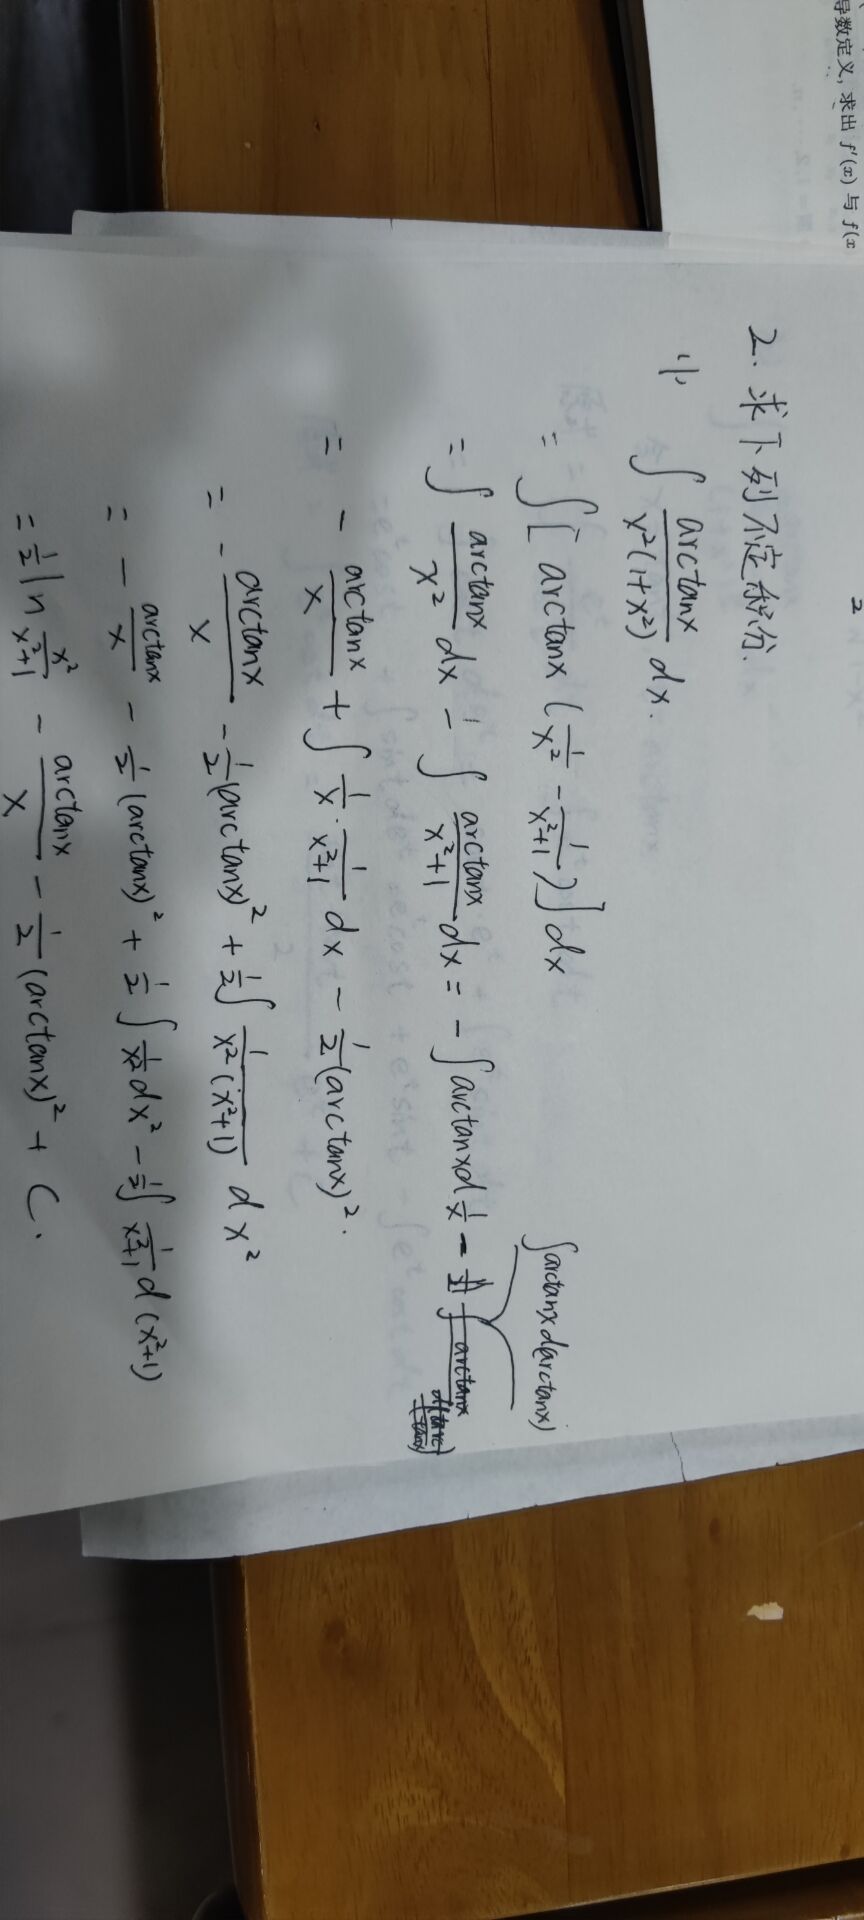 导数定义, 求出 f'(x) 与 f(x
2. 求下列不定积分.
(1) ∫ arctanx / x²(1+x²) dx.
= ∫[ arctanx (1/x² - 1/x²+1)] dx
∫arctanxd(arctanx)
= ∫ arctanx/x² dx - ∫ arctanx/x²+1 dx = - ∫arctanxd 1/x -
= - arctanx/x + ∫ 1/x · 1/x²+1 dx - 1/2 (arctanx)².
= - arctanx/x - 1/2 (arctanx)² + 1/2 ∫ 1/x²(x²+1) dx²
= - arctanx/x - 1/2 (arctanx)² + 1/2 ∫ 1/x² dx² - 1/2 ∫ 1/x²+1 d(x²+1)
= 1/2 ln x²/x²+1 - arctanx/x - 1/2 (arctanx)² + C.